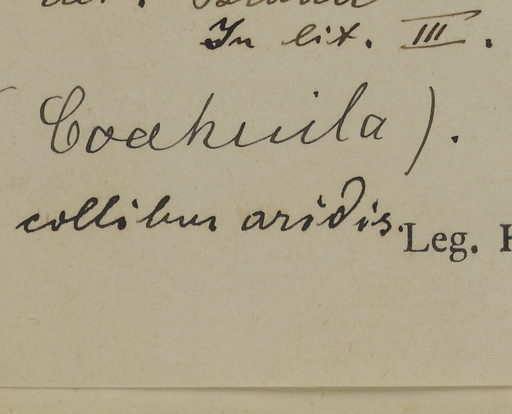 In lit. III.
Coahuila).
collibus aridis. Leg.